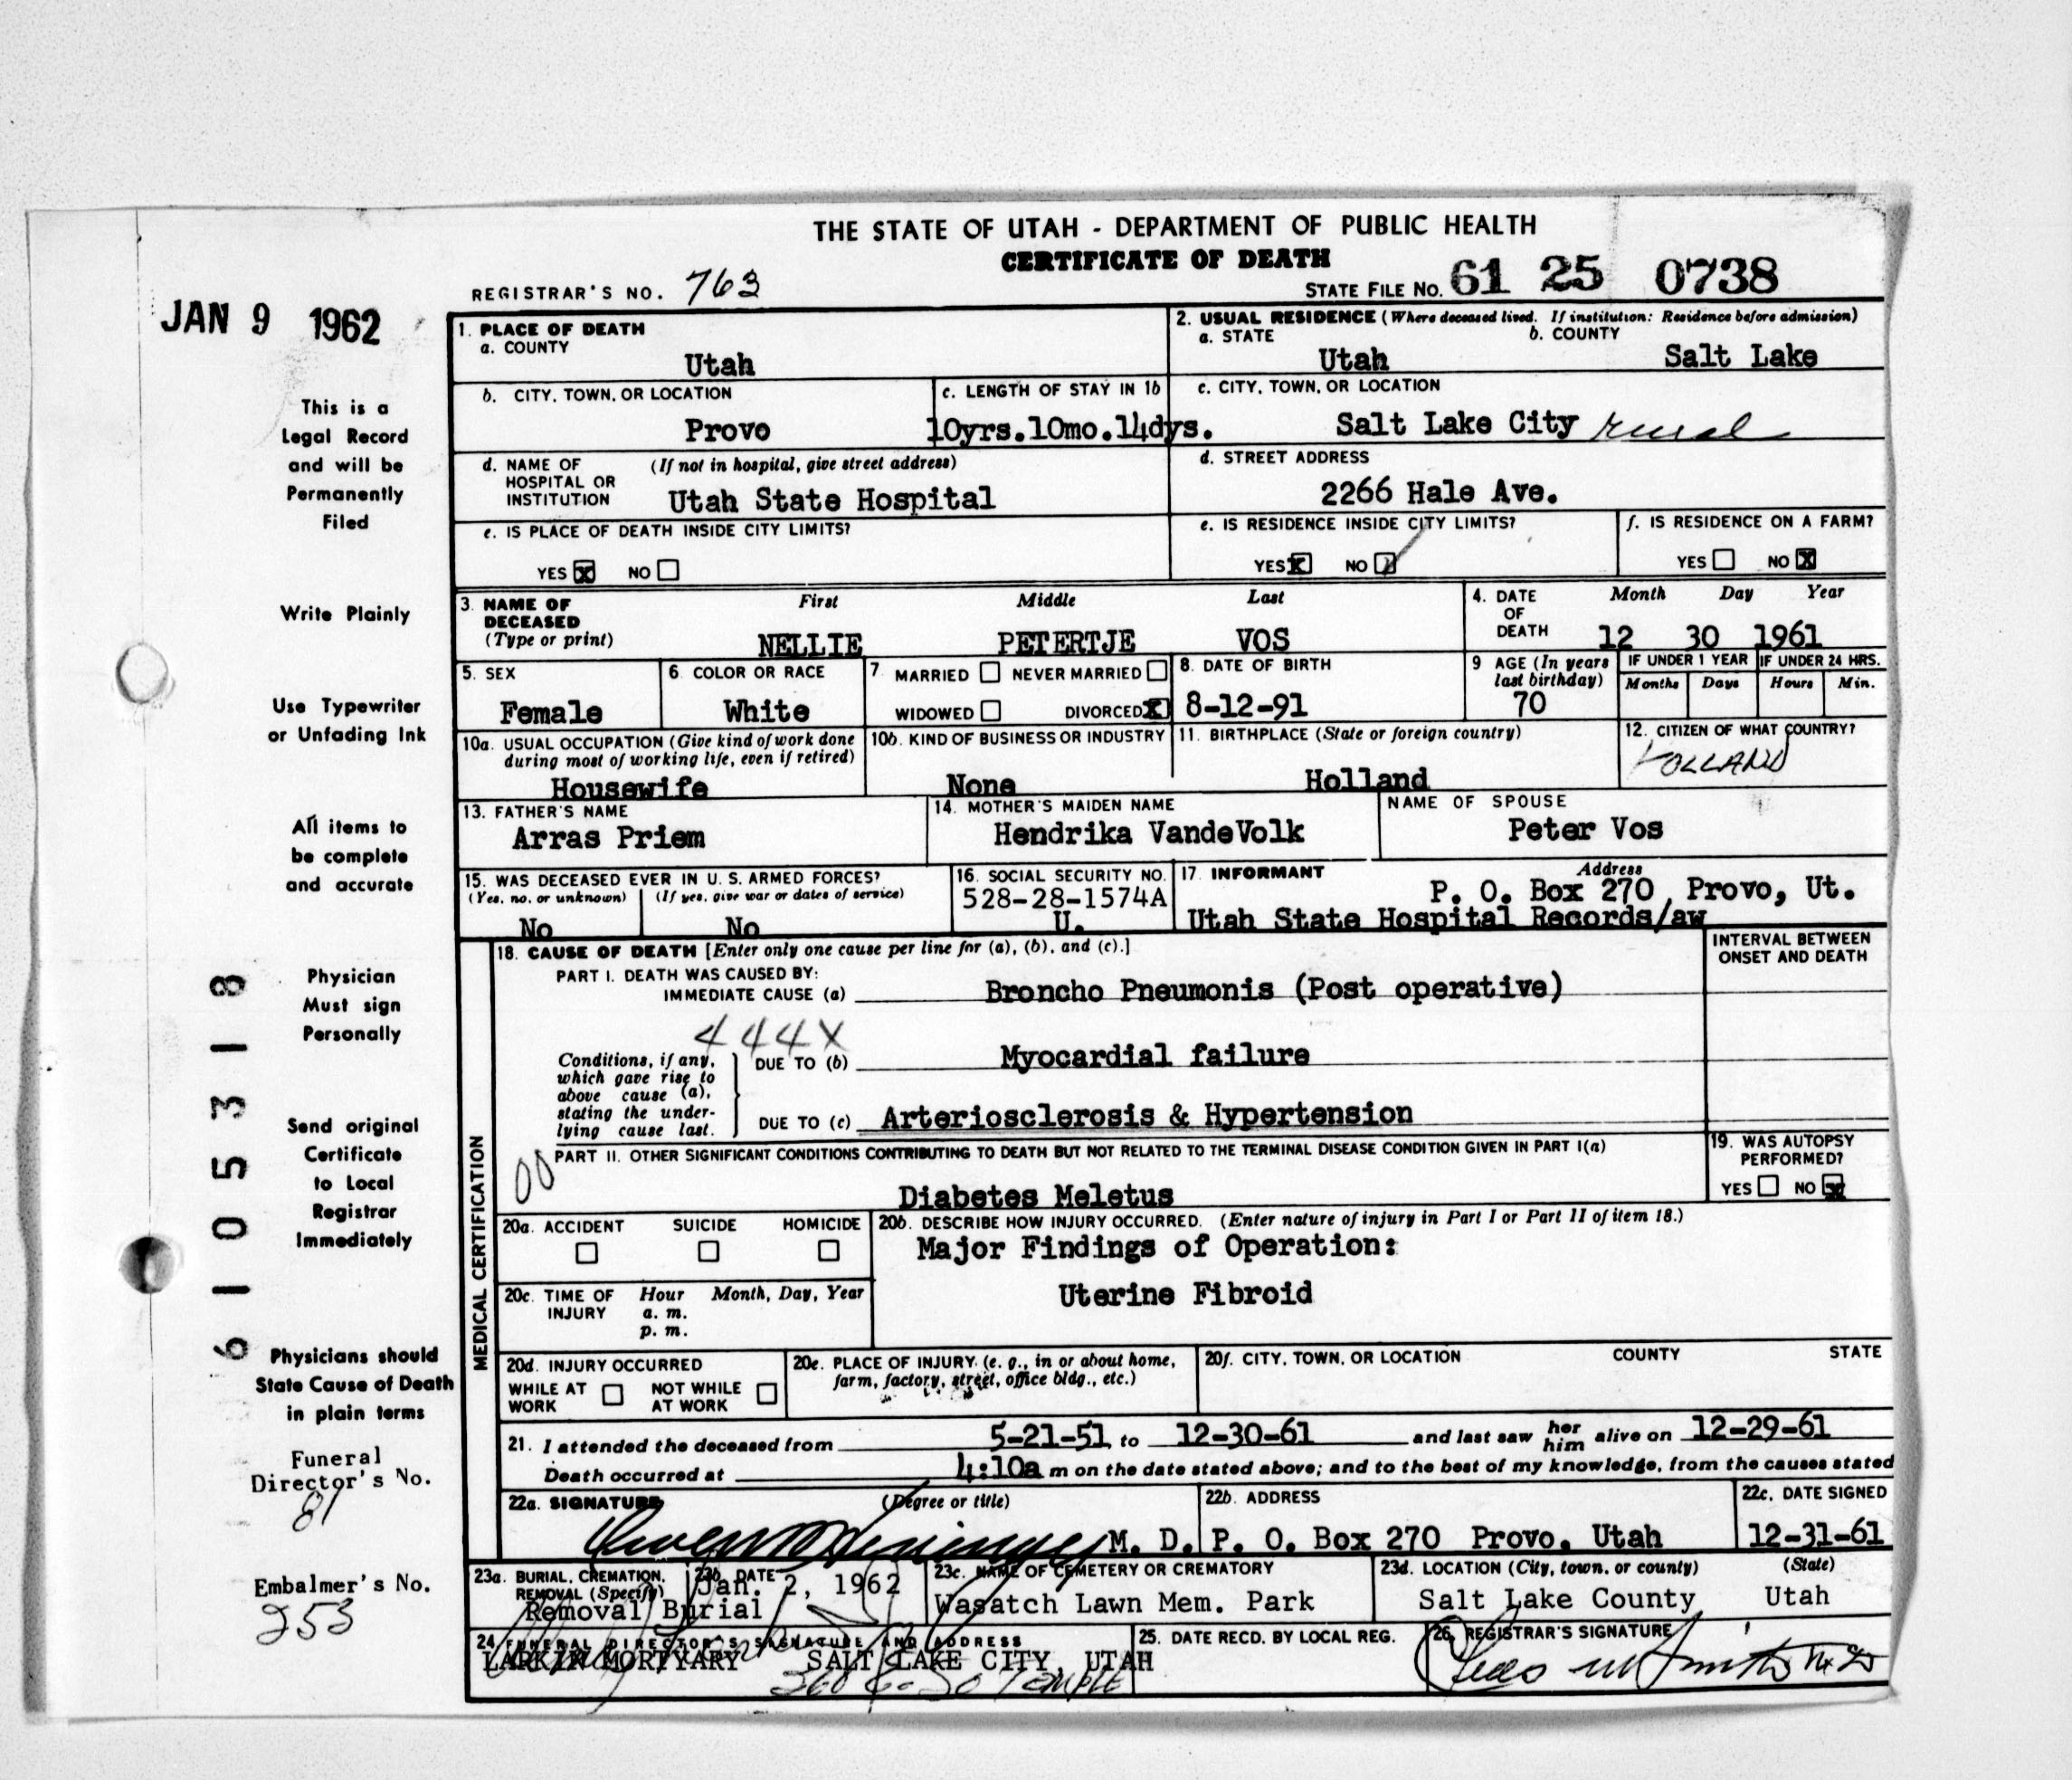 THE STATE OF UTAH - DEPARTMENT OF PUBLIC HEALTH
CERTIFICATE OF DEATH
REGISTRAR'S NO. 763
STATE FILE NO. 61 25 0738
JAN 9 1962
This is a
Legal Record
and will be
Permanently
Filed
Write Plainly
Use Typewriter
or Unfading Ink
All items to
be complete
and accurate
Physician
Must sign
Personally
Send original
Certificate
to Local
Registrar
Immediately
Physicians should
State Cause of Death
in plain terms
Funeral
Director's No.
81
Embalmer's No.
253
6105318
1. PLACE OF DEATH
a. COUNTY
Utah
2. USUAL RESIDENCE (Where deceased lived. If institution: Residence before admission)
a. STATE
Utah
b. COUNTY
Salt Lake
b. CITY, TOWN, OR LOCATION
Provo
c. LENGTH OF STAY IN 1b
10yrs.10mo.14dys.
c. CITY, TOWN, OR LOCATION
Salt Lake City rural
d. NAME OF HOSPITAL OR INSTITUTION
(If not in hospital, give street address)
Utah State Hospital
d. STREET ADDRESS
2266 Hale Ave.
e. IS PLACE OF DEATH INSIDE CITY LIMITS?
YES X NO
e. IS RESIDENCE INSIDE CITY LIMITS?
YES X NO
f. IS RESIDENCE ON A FARM?
YES NO X
3. NAME OF DECEASED
(Type or print)
First Middle Last
NELLIE PETERTJE VOS
4. DATE OF DEATH
Month Day Year
12 30 1961
5. SEX
Female
6. COLOR OR RACE
White
7. MARRIED NEVER MARRIED
WIDOWED DIVORCED X
8. DATE OF BIRTH
8-12-91
9 AGE (In years last birthday)
70
IF UNDER 1 YEAR
Months Days
IF UNDER 24 HRS.
Hours Min.
10a. USUAL OCCUPATION (Give kind of work done during most of working life, even if retired)
Housewife
10b. KIND OF BUSINESS OR INDUSTRY
None
11. BIRTHPLACE (State or foreign country)
Holland
12. CITIZEN OF WHAT COUNTRY?
HOLLAND
13. FATHER'S NAME
Arras Priem
14. MOTHER'S MAIDEN NAME
Hendrika VandeVolk
NAME OF SPOUSE
Peter Vos
15. WAS DECEASED EVER IN U. S. ARMED FORCES?
(Yes, no, or unknown) (If yes, give war or dates of service)
No No
16. SOCIAL SECURITY NO.
528-28-1574A
U.
17. INFORMANT Address
P. O. Box 270, Provo, Ut.
Utah State Hospital Records/aw
MEDICAL CERTIFICATION
18. CAUSE OF DEATH [Enter only one cause per line for (a), (b), and (c).]
INTERVAL BETWEEN ONSET AND DEATH
PART I. DEATH WAS CAUSED BY:
IMMEDIATE CAUSE (a) Broncho Pneumonis (Post operative)
444X
Conditions, if any, which gave rise to above cause (a), stating the under-lying cause last.
DUE TO (b) Myocardial failure
DUE TO (c) Arteriosclerosis & Hypertension
00
PART II. OTHER SIGNIFICANT CONDITIONS CONTRIBUTING TO DEATH BUT NOT RELATED TO THE TERMINAL DISEASE CONDITION GIVEN IN PART I(a)
Diabetes Meletus
19. WAS AUTOPSY PERFORMED?
YES NO X
20a. ACCIDENT SUICIDE HOMICIDE
20b. DESCRIBE HOW INJURY OCCURRED. (Enter nature of injury in Part I or Part II of item 18.)
Major Findings of Operation:
Uterine Fibroid
20c. TIME OF INJURY
Hour Month, Day, Year
a. m.
p. m.
20d. INJURY OCCURRED
WHILE AT WORK NOT WHILE AT WORK
20e. PLACE OF INJURY (e. g., in or about home, farm, factory, street, office bldg., etc.)
20f. CITY, TOWN, OR LOCATION COUNTY STATE
21. I attended the deceased from 5-21-51 to 12-30-61 and last saw her him alive on 12-29-61
Death occurred at 4:10a m on the date stated above; and to the best of my knowledge, from the causes stated
22a. SIGNATURE (Degree or title)
M. D.
22b. ADDRESS
P. O. Box 270 Provo, Utah
22c. DATE SIGNED
12-31-61
23a. BURIAL, CREMATION, REMOVAL (Specify)
Removal Burial
23b. DATE
Jan. 2, 1962
23c. NAME OF CEMETERY OR CREMATORY
Wasatch Lawn Mem. Park
23d. LOCATION (City, town, or county) (State)
Salt Lake County Utah
24. FUNERAL DIRECTOR'S SIGNATURE AND ADDRESS
LARKIN MORTYARY SALT LAKE CITY, UTAH
260 E. So TEMPLE
25. DATE RECD. BY LOCAL REG.
26. REGISTRAR'S SIGNATURE